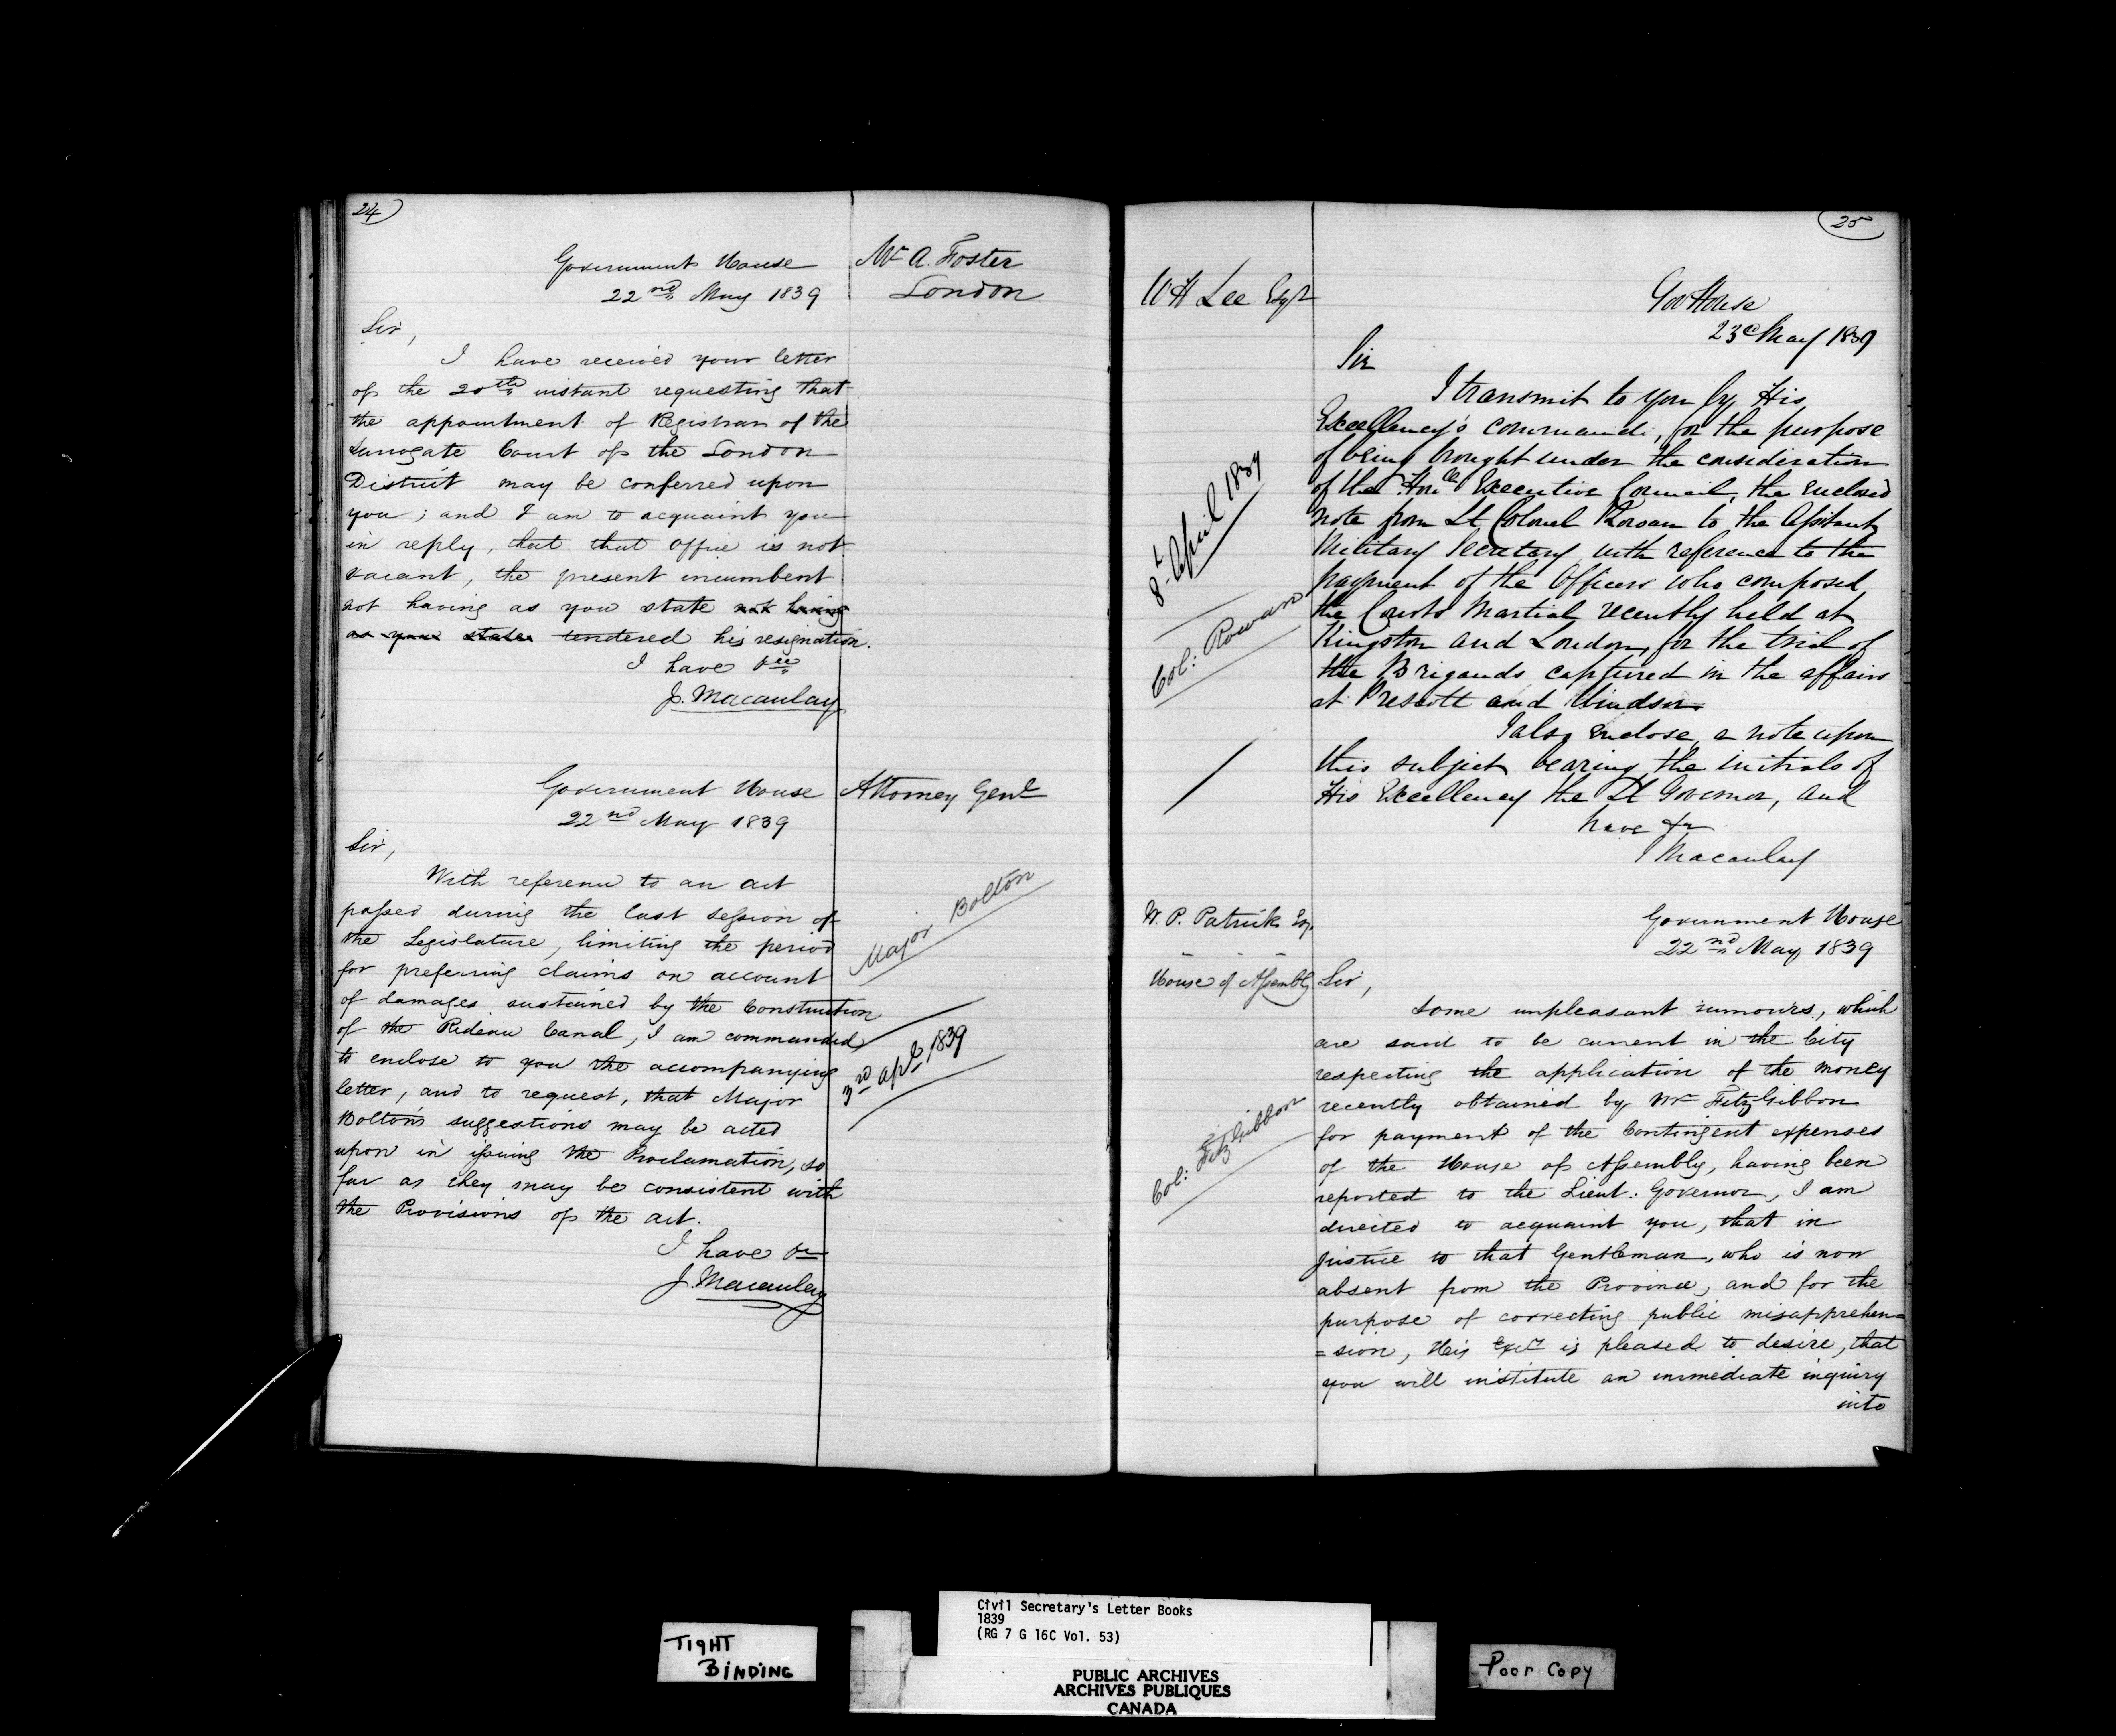 24
Mr A. Foster
London
Government House
22nd May 1839
Sir,
I have received your letter
of the 20th instant requesting that
the appointment of Registrar of the
Surrogate Court of the London
District may be conferred upon
you; and I am to acquaint you
in reply, that that office is not
vacant, the present incumbent
not having as you state not having
as you state tendered his resignation.
I have &ce
J. Macaulay
Attorney Genl
Government House
22nd May 1839
Sir,
With reference to an act
passed during the last session of
the Legislature, limiting the period
for preferring claims on account
of damages sustained by the Construction
of the Rideau Canal, I am commanded
to enclose to you the accompanying
letter, and to request, that Major
Bolton's suggestions may be acted
upon in issuing the Proclamation, so
far as they may be consistent with
the Provisions of the act.
I have &c
J. Macaulay
Major Bolton
3rd apl 1839
25
W H Lee Esqr
Gov House
23d May 1839
Sir
I transmit to you by His
Excellency's commands, for the purpose
of being brought under the consideration
of the Honble Executive Council, the enclosed
note from Lt Colonel Rowan to the Assistant
Military Secretary with reference to the
payment of the Officers who composed
the Courts Martial recently held at
Kingston and London, for the trial of
the Brigands captured in the affairs
at Prescott and Windsor.
I also enclose a note upon
this subject bearing the initials of
His Excellency the Lt Governor, and
have &c
J Macaulay
8 April 1839
Col: Rowan
W. P. Patrick Esq.
House of Assembly
Government House
22nd May 1839
Sir,
Some unpleasant rumours, which
are said to be current in the City
respecting the application of the money
recently obtained by Mr FitzGibbon
for payment of the Contingent expenses
of the House of Assembly, having been
reported to the Lieut: Governor, I am
directed to acquaint you, that in
justice to that Gentleman, who is now
absent from the Province, and for the
purpose of correcting public misapprehen=
=sion, His Excy is pleased to desire, that
you will institute an immediate inquiry
into
Col: FitzGibbon
TIGHT
BINDING
Civil Secretary's Letter Books
1839
(RG 7 G 16C Vol. 53)
PUBLIC ARCHIVES
ARCHIVES PUBLIQUES
CANADA
Poor Copy